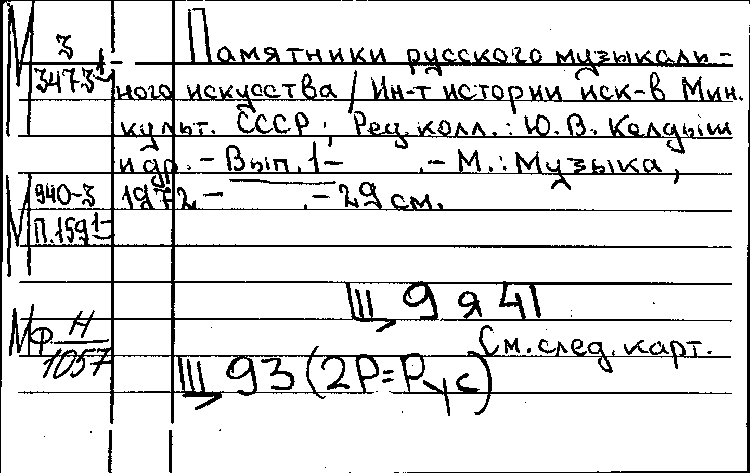 М З
3473 1-
Памятники русского музыкаль-
ного искусства / Ин-т истории иск-в Мин.
культ. СССР; Ред. колл.: Ю. В. Келдыш
и др. - Вып. 1-      . - М.: Музыка,
1972 -      . - 29 см.
М 940-3
П.159 1-
III 9 я 41
Мф Н
1057
См. след. карт.
III 93 (2Р=Рус)